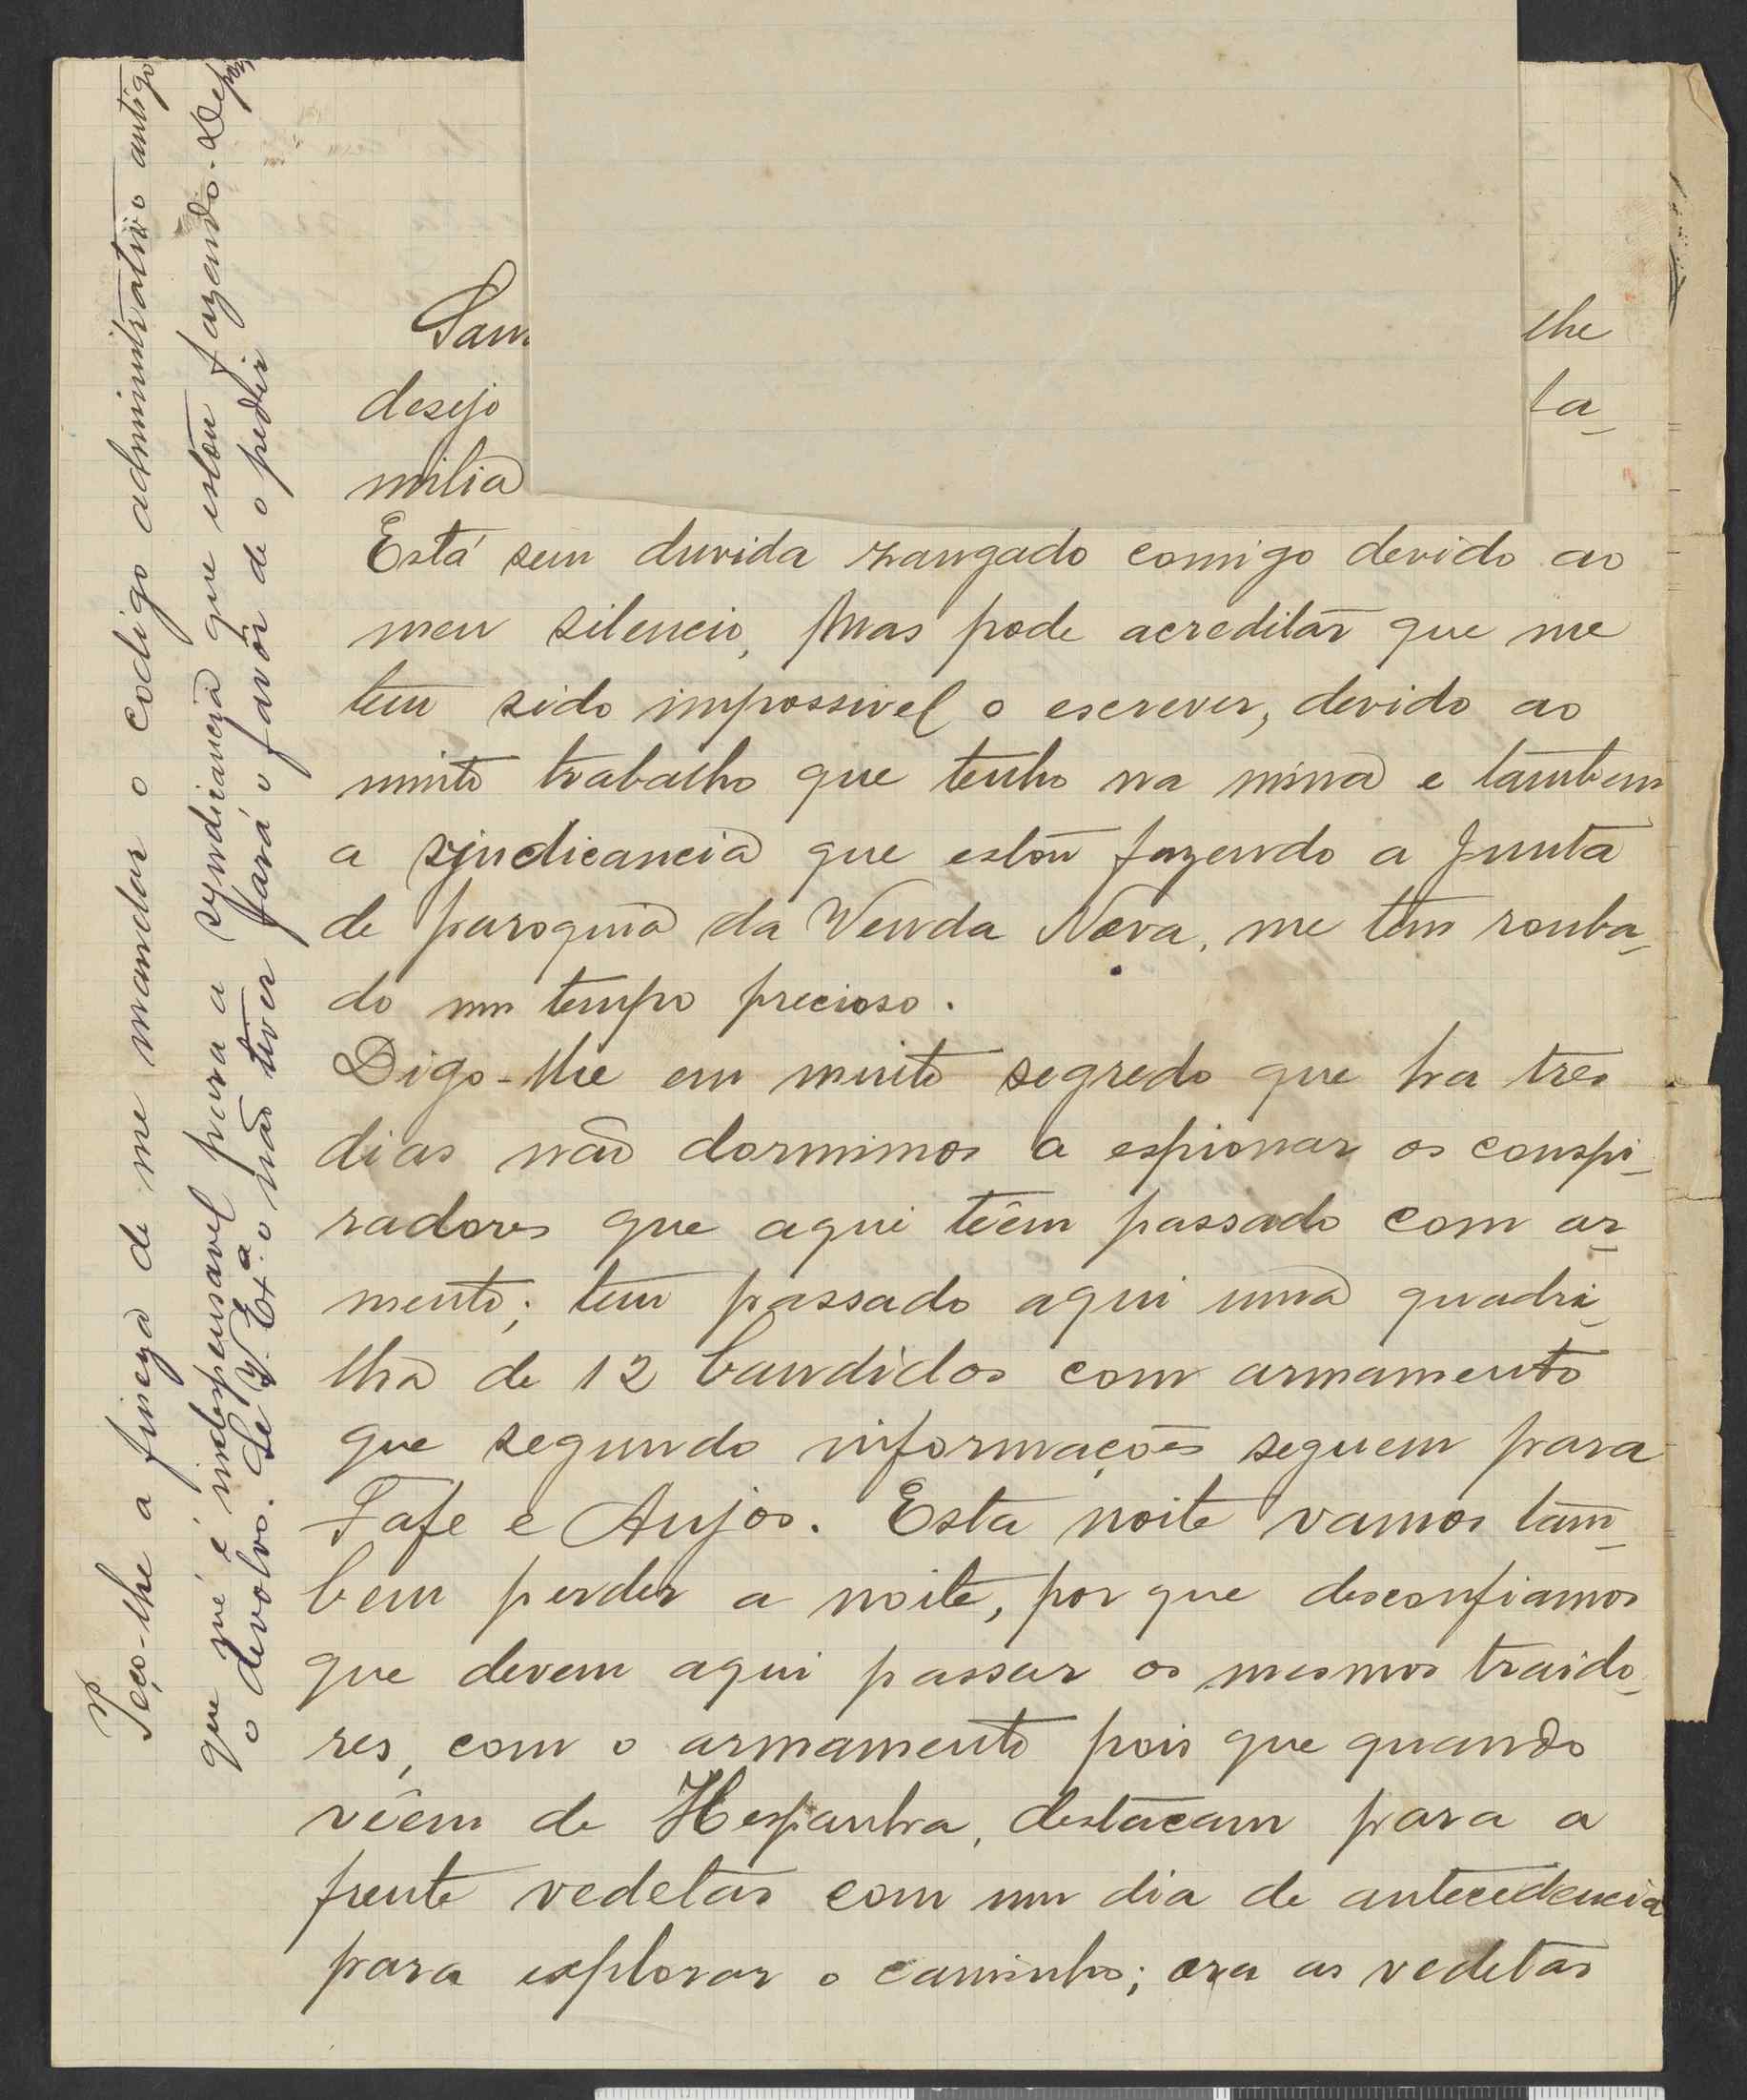 desejo
milia
lhe
fa-
Está sem duvida zangado comigo devido ao
meu silencio, mas pode acreditar que me
tem sido impossivel o escrever, devido ao
muito trabalho que tenho na mina e tambem
a sjndicancia que estou fazendo a Junta
de paroquia da Venda Nova, me têm rouba-
do um tempo precioso.
Digo-lhe em muito segredo que ha tres
dias não dormimos a espionar os conspi-
radores que aqui têem passado com ar-
mento; tem passado aqui uma quadri-
lha de 12 bandidos com armamento
que segundo informações seguem para
Fafe e Anjos. Esta noite vamos tam-
bem perder a noite, por que desconfiamos
que devem aqui passar os mesmos traido-
res, com o armamento pois que quando
vêem de Hespanha, destacam para a
frente vedetas com um dia de antecedencia
para explorar o caminho; ora as vedetas
Peço-lhe a fineza de me mandar o codigo administrativo antigo
que me é indespensavel para a syndicancia que estou fazendo. Depois
o devolvo. Se V. Exª. o não tiver fará o favôr de o pedir